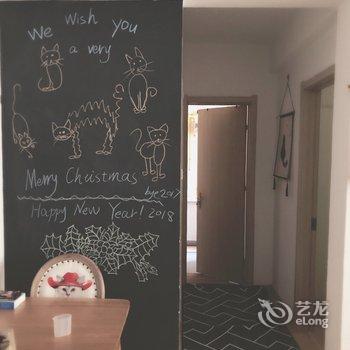 We wish you
a very
Merry Christmas
bye 2017
Happy New Year! 2018
艺龙
eLong